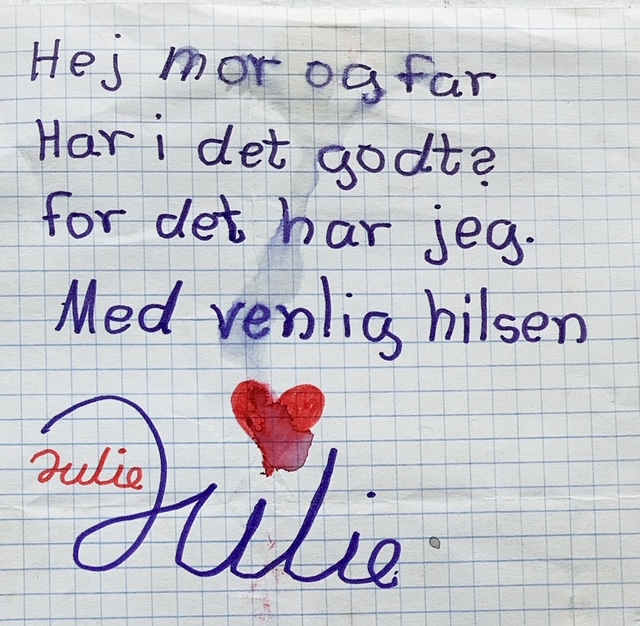 Hej mor og far
Har i det godt?
for det har jeg.
Med venlig hilsen
Julie
Julie